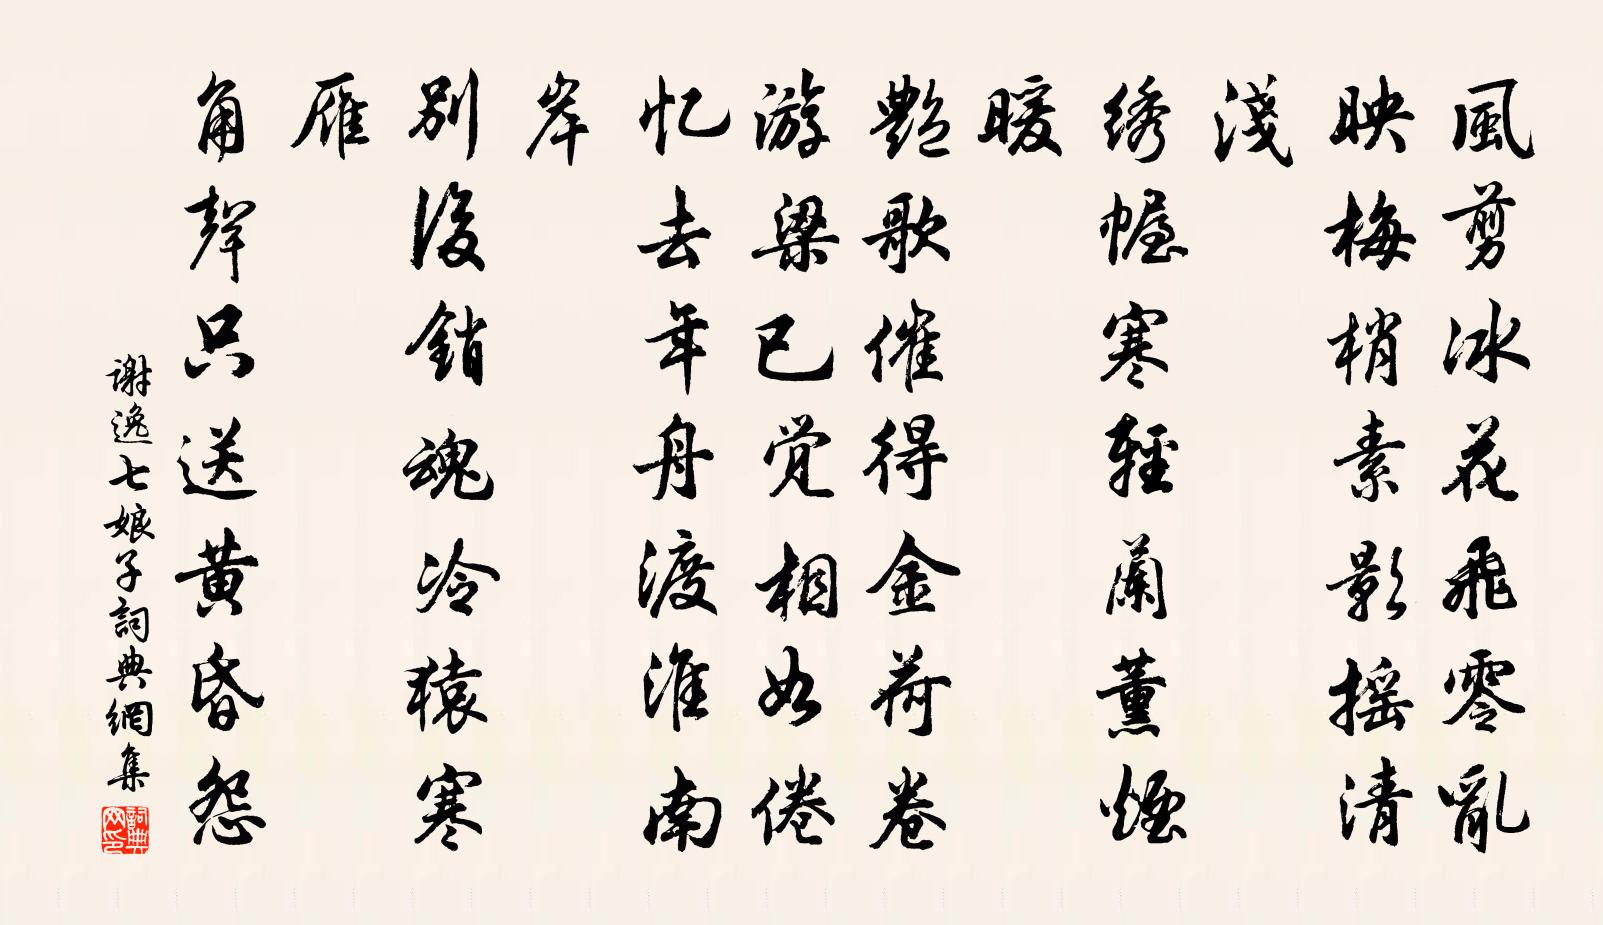 風剪冰花飛零亂
映梅梢素影摇清
淺
绣幄寒輕蘭薰煙
暖
艷歌催得金荷卷
游梁已觉相如倦
忆去年舟渡淮南
岸
别後銷魂冷猿寒
雁
角聲只送黄昏怨
谢逸七娘子詞典網集
詞典網印